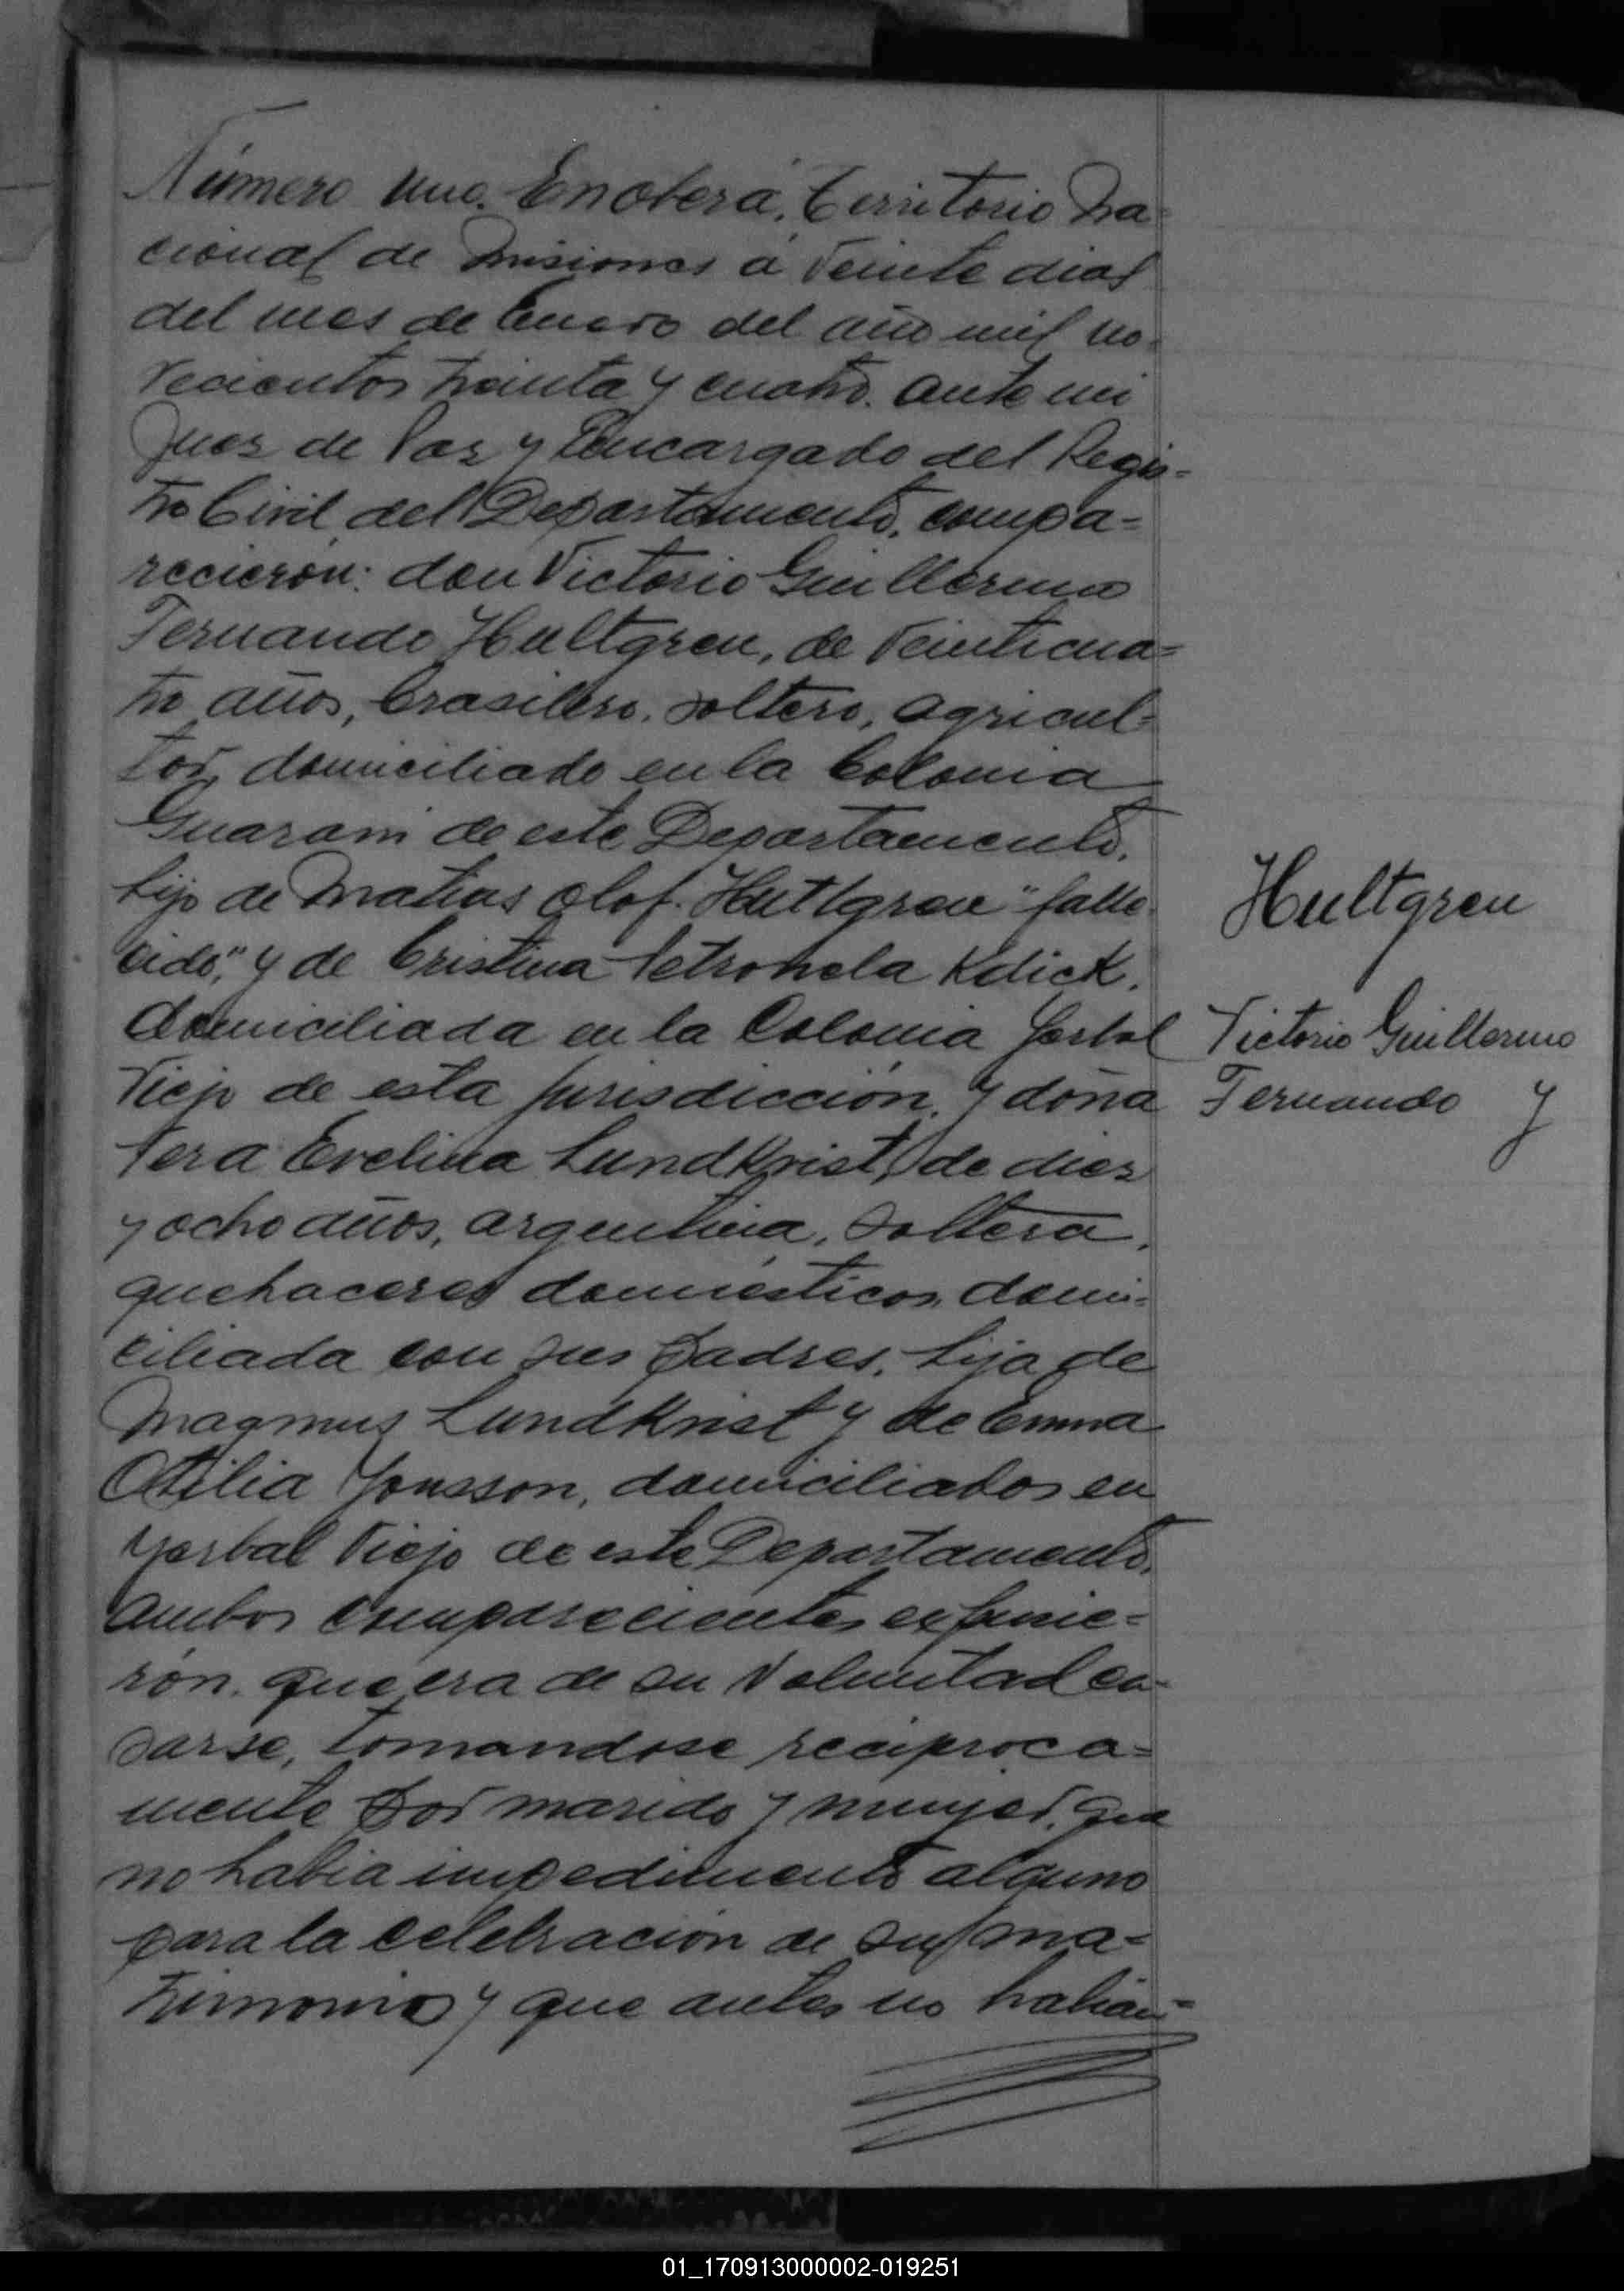 Número Uno. En Oberá, Territorio Na-
cional de Misiones á veinte dias
del mes de Enero del año mil no-
vecientos treinta y cuatro. ante mi
Juez de Paz y Encargado del Regis-
tro Civil del Departamento, compa-
recieron: don Victorio Guillermo
Fernando Hultgren, de veinticua-
tro años, brasilero, soltero, agricul-
tor, domiciliado en la Colonia
Guarani de este Departamento,
hijo de Matias Olof Hultgren "falle-
cido", y de Cristina Petronela Kdick,
domiciliada en la Colonia Yerbal
Viejo de esta jurisdicción, y doña
Vera Evelina Lundkrist, de diez
y ocho años, argentina, soltera,
quehaceres domésticos, domi-
ciliada con sus padres, hija de
Magmus Lundkrist y de Emma
Otilia Jonsson, domiciliados en
Yerbal Viejo de este Departamento.
Ambos comparecientes expusie-
ron, que era de su voluntad ca-
sarse, tomandose reciproca-
mente por marido y mujer, que
no habia impedimento alguno
para la celebración de su ma-
trimonio y que antes no habian-
Hultgren
Victorio Guillermo
Fernando y
01_170913000002-019251